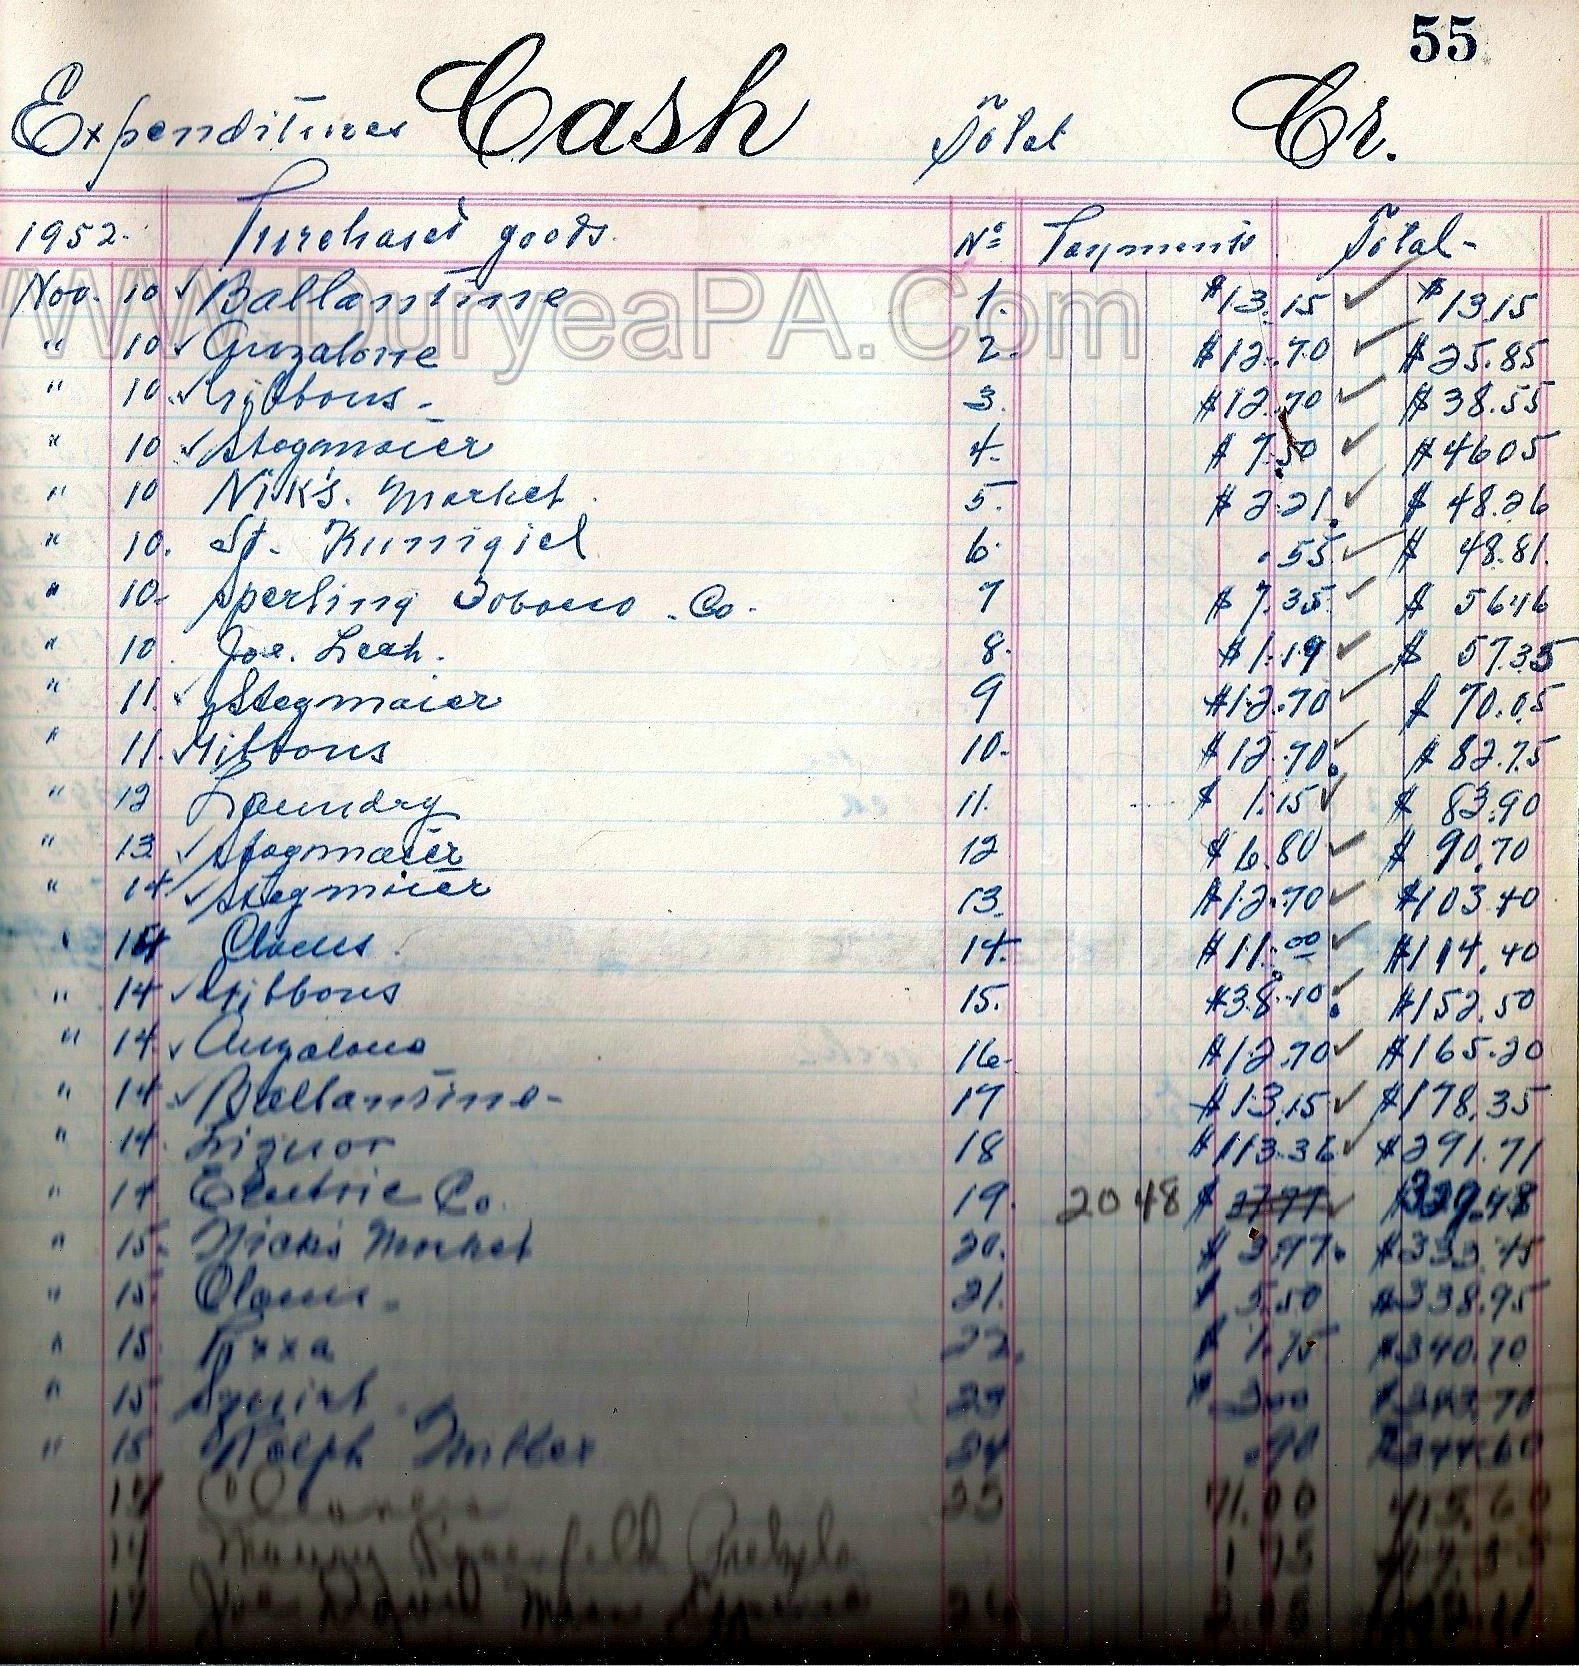 55
Expenditures Cash Total Cr.
1952. Purchased goods. No Payments Total
WWW.DuryeaPA.Com
Nov. 10 ✓ Ballantine 1. $13.15 ✓ $13.15
" 10 ✓ Anzalone 2. $12.70 ✓ $25.85
" 10 ✓ Gibbons 3. $12.70 ✓ $38.55
" 10 ✓ Stegmaier 4. $7.50 ✓ $46 05
" 10 Nik's. Market. 5. $2.21. ✓ $48.26
" 10. St. 6. .55 ✓ $48.81.
" 10. Sperling Tobacco Co. 7 $7.35 ✓ $56.16
" 10. Joe. 8. $1.19 ✓ $57.35
" 11. ✓ Stegmaier 9 $12.70 ✓ $70.05
" 11. ✓ Gibbons 10. $12.70. ✓ $82.75
" 12 Laundry 11. $1.15 ✓ $83.90
" 13 ✓ Stegmaier 12 $6.80 ✓ $90.70
" 14 ✓ Stegmaier 13. $12.70 ✓ $103.40
" 14 Clams. 14. $11.00 ✓ $114.40
" 14 ✓ Gibbons 15. $38.10. ✓ $152.50
" 14 ✓ Anzalone 16. $12.70 ✓ $165.20
" 14 ✓ Ballantine 17 $13.15 ✓ $178.35
" 14. Liquor 18 $113.36 ✓ $291.71
" 14 Electric Co. 19. 2048 $ ✓ $329.48
" 15. Nick's Market 20. $3.97. $333.45
" 15 Clams. 21. $5.50 $338.95
" 15. 22. $1.75 $340.70
" 15 23 $3.00 $343.70
" 15 Ralph Miller 24 .90 $344.60
17 25 71.00 415.60
17 Rosenfeld Pretzels 1 75
17 Joe